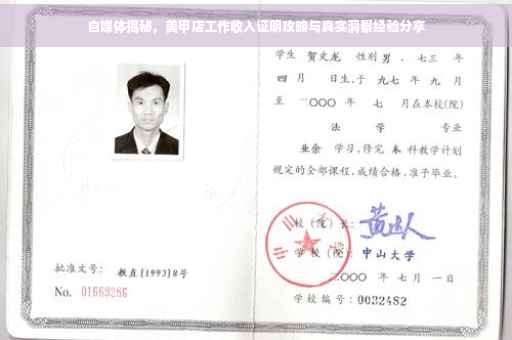 自媒体揭秘，美甲店工作收入证明攻略与真实洞察经验分享
学生 贺文龙 性别 男 、七三 年
四 月 日生,于 九七 年 九 月
至 二○○○ 年 七 月在本校(院)
法 学 专业
业余 学习,修完 本 科教学计划
规定的全部课程,成绩合格,准予毕业。
校 (院) 长:
学 校 (院): 中山大学
二○○○ 年 七 月 一 日
学校编号: 0032482
批准文号: 教直[1993]8号
No. 01669286